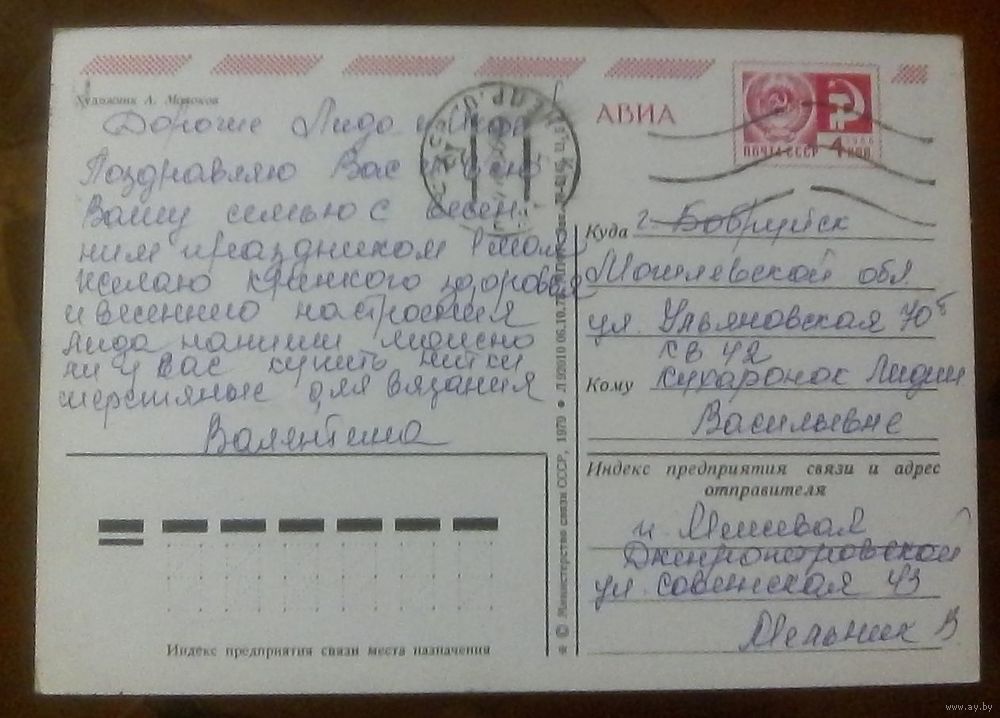 Художник А. Молоков
Дорогие Лида и
Поздравляю Вас
Вашу семью с весен-
ним праздником 1 мая
желаю крепкого здоровья
и весеннего настроения
Лида напиши можно
ли у вас купить нитки
шерстяные для вязания
Валентина
Индекс предприятия связи места назначения
© Министерство связи СССР, 1979
Л 92010 06.10.78
АВИА
ПОЧТА СССР 4 КОП
1966
Куда г. Бобруйск
Могилевской обл
ул. Ульяновская 70б
кв 42
Кому Кухаронок Лидии
Васильевне
Индекс предприятия связи и адрес
отправителя
п. Межевая
Днепропетровской
ул. Советская 43
Мельник В
www.ay.by